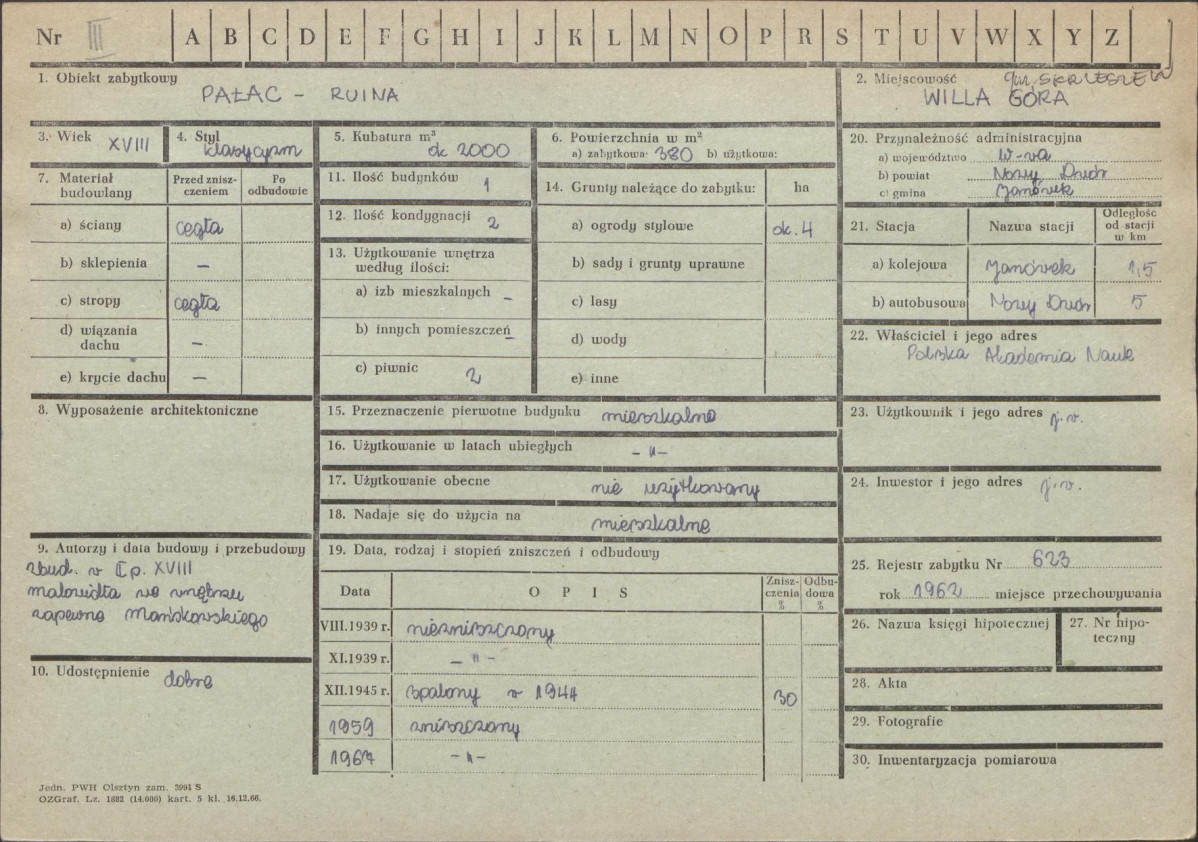 Nr III A B C D E F G H I J K L M N O P R S T U V W X Y Z
1. Obiekt zabytkowy
PAŁAC - RUINA
2. Miejscowość gm. SKRZESZEW
WILLA GÓRA
3. Wiek XVIII
4. Styl klasycyzm
5. Kubatura m³ ok 2000
6. Powierzchnia w m²
a) zabytkowa: 380 b) użytkowa:
7. Materiał budowlany
Przed znisz-
czeniem
Po
odbudowie
a) ściany cegła
b) sklepienia —
c) stropy cegła
d) wiązania
dachu —
e) krycie dachu —
8. Wyposażenie architektoniczne
9. Autorzy i data budowy i przebudowy
zbud. w I p. XVIII
malowidła we wnętrzu
zapewne Mańkowskiego
10. Udostępnienie dobre
11. Ilość budynków 1
12. Ilość kondygnacji 2
13. Użytkowanie wnętrza
według ilości:
a) izb mieszkalnych —
b) innych pomieszczeń —
c) piwnic 2
14. Grunty należące do zabytku: ha
a) ogrody stylowe ok. 4
b) sady i grunty uprawne
c) lasy
d) wody
e) inne
15. Przeznaczenie pierwotne budynku mieszkalne
16. Użytkowanie w latach ubiegłych - " -
17. Użytkowanie obecne nie użytkowany
18. Nadaje się do użycia na mieszkalne
19. Data, rodzaj i stopień zniszczeń i odbudowy
Data
O P I S
Znisz-
czenia
%
Odbu-
dowa
%
VIII.1939 r. niezniszczony
XI.1939 r. - " -
XII.1945 r. spalony w 1944 30
1959 zniszczony
1967 - " -
20. Przynależność administracyjna
a) województwo W-wa
b) powiat Nowy Dwór
c) gmina Janówek
21. Stacja
Nazwa stacji
Odległość
od stacji
w km
a) kolejowa Janówek 1,5
b) autobusowa Nowy Dwór 5
22. Właściciel i jego adres
Polska Akademia Nauk
23. Użytkownik i jego adres j.w.
24. Inwestor i jego adres j.w.
25. Rejestr zabytku Nr 623
rok 1962 miejsce przechowywania
26. Nazwa księgi hipotecznej
27. Nr hipo-
teczny
28. Akta
29. Fotografie
30. Inwentaryzacja pomiarowa
Jedn. PWH Olsztyn zam. 3991 S
OZGraf. Lz. 1882 (14.000) kart. 5 kl. 16.12.66.